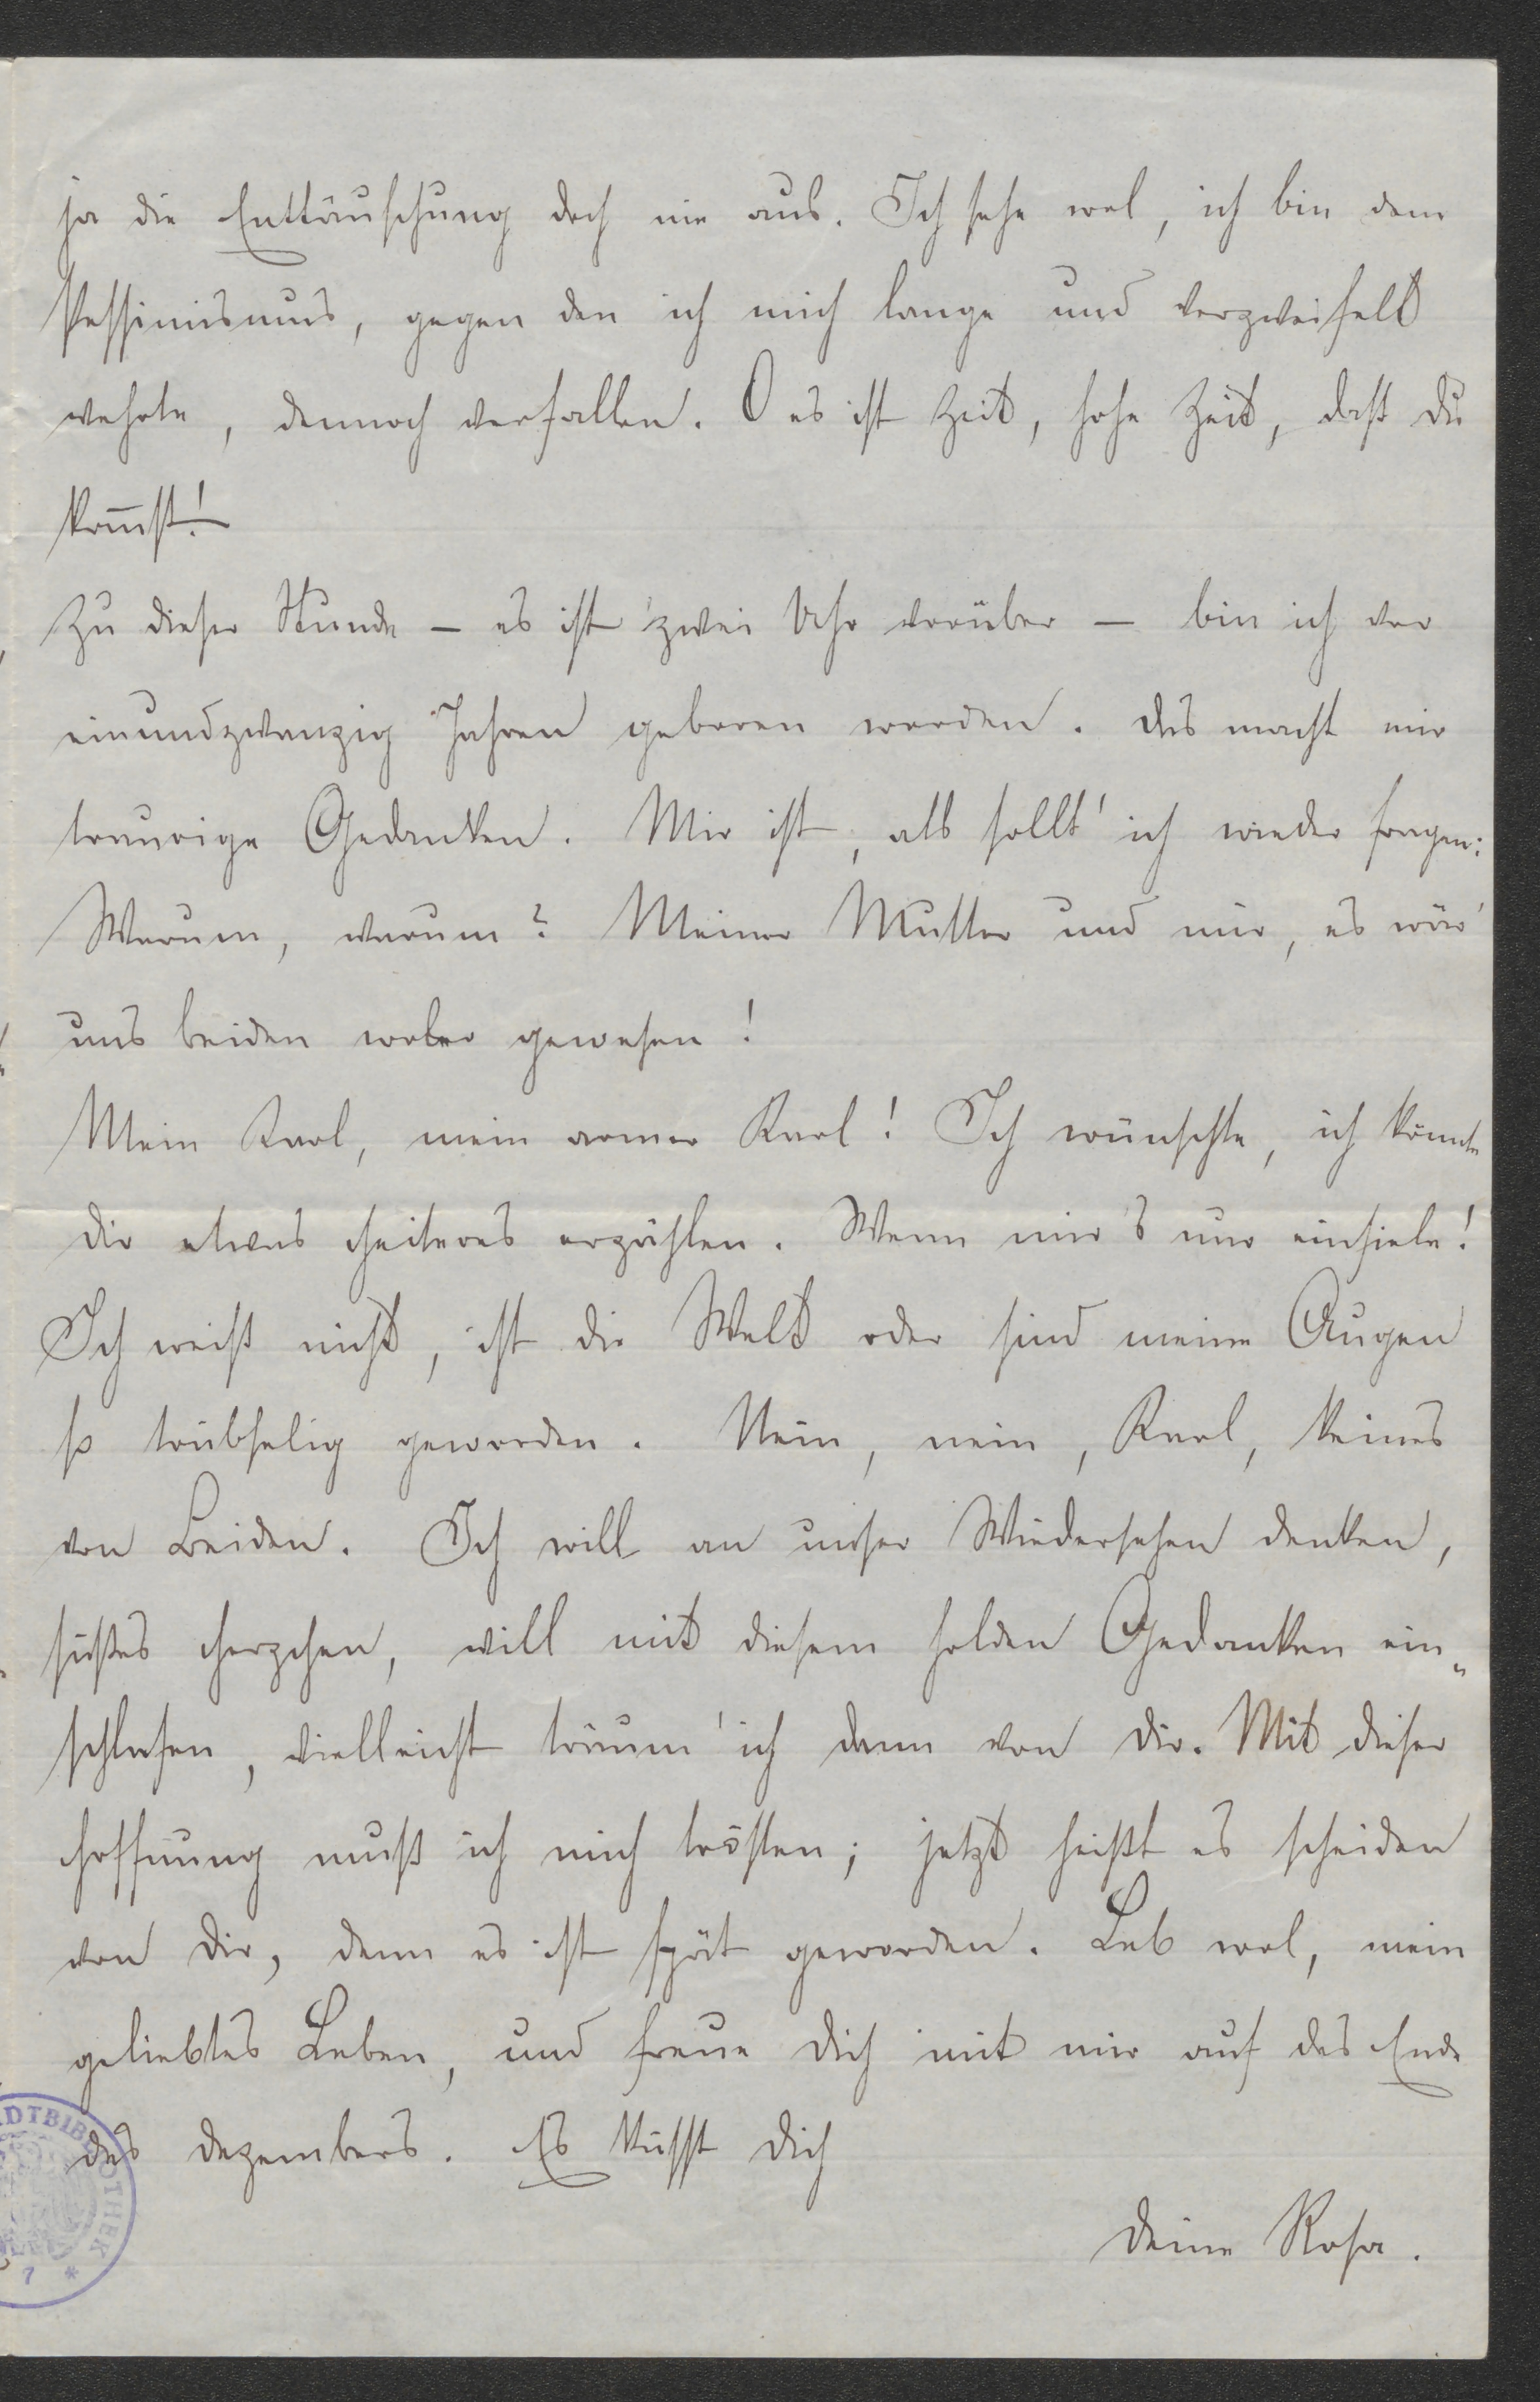 ja die Enttäuschung doch nie aus. Ich sehe wol, ich bin dem
Pessimismus, gegen den ich mich lange und verzweifelt
wehrte, dennoch verfallen. O es ist Zeit, hohe Zeit, daß Du
kom̅st!
Zu dieser Stunde – es ist zwei Uhr vorüber – bin ich vor
einundzwanzig Jahren geboren worden. Das macht mir
traurige Gedanken. Mir ist, als sollt' ich wieder fragen:
Warum, warum? Meiner Mutter und mir, es wär'
uns beiden woler gewesen!
Mein Karl, mein armer Karl! Ich wünschte, ich könnte
Dir etwas Heiteres erzählen. Wenn mir's nur einfiele!
Ich weiß nicht, ist die Welt oder sind meine Augen
so trübselig geworden. Nein, nein, Karl, keines
von Beiden. Ich will an unser Wiedersehen denken,
süßes Herzchen, will mit diesem holden Gedanken ein„
schlafen, vielleicht träum' ich dann von Dir. Mit dieser
Hoffnung muß ich mich trösten; jetzt heißt es scheiden
von Dir, denn es ist spät geworden. Leb wol, mein
geliebtes Leben, und freue Dich mit mir auf das Ende
des Dezembers. Es küsst Dich
Deine Rosa.
7 *